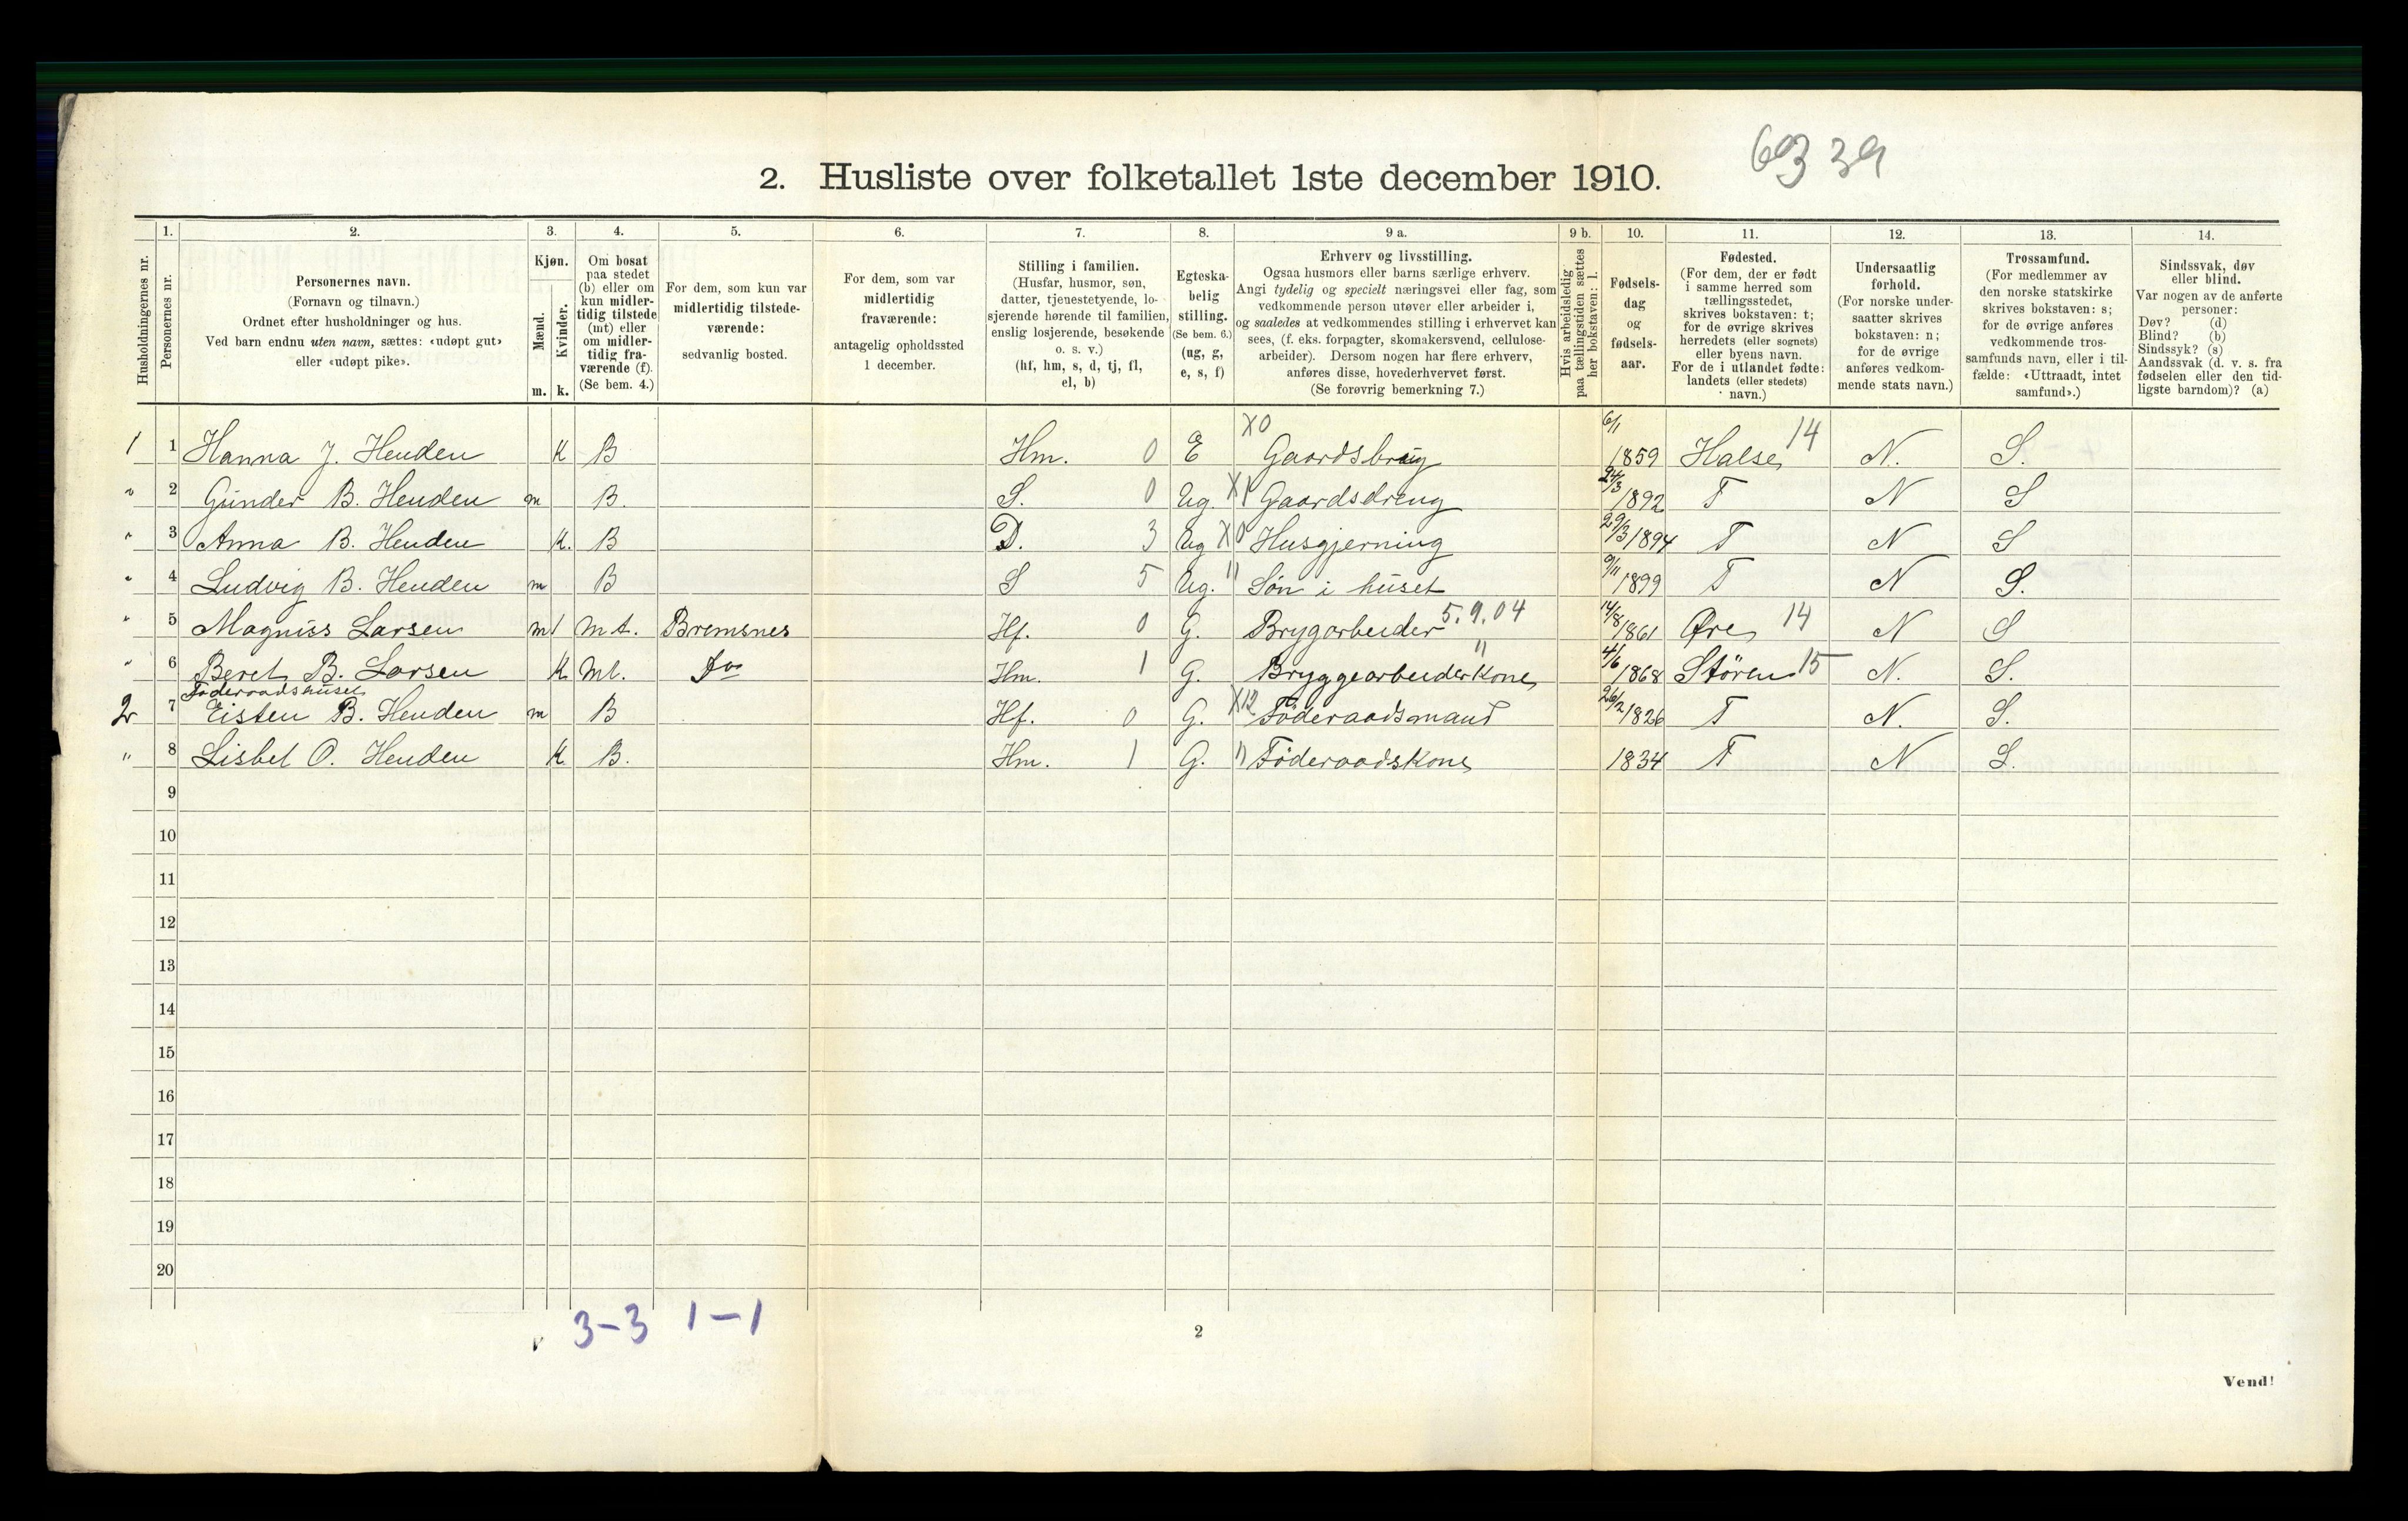 693 39
2. Husliste over folketallet 1ste december 1910.
Husholdningernes nr.
1.
Personernes nr.
2.
Personernes navn.
(Fornavn og tilnavn.)
Ordnet efter husholdninger og hus.
Ved barn endnu uten navn, sættes: «udøpt gut»
eller «udøpt pike».
3.
Kjøn.
Mænd.
Kvinder.
m. k.
4.
Om bosat
paa stedet
(b) eller om
kun midler-
tidig tilstede
(mt) eller
om midler-
tidig fra-
værende (f).
(Se bem. 4.)
5.
For dem, som kun var
midlertidig tilstede-
værende:
sedvanlig bosted.
6.
For dem, som var
midlertidig
fraværende:
antagelig opholdssted
1 december.
7.
Stilling i familien.
(Husfar, husmor, søn,
datter, tjenestetyende, lo-
sjerende hørende til familien,
enslig losjerende, besøkende
o. s. v.)
(hf, hm, s, d, tj, fl,
el, b)
8.
Egteska-
belig
stilling.
(Se bem. 6.)
(ug, g,
e, s, f)
9 a.
Erhverv og livsstilling.
Ogsaa husmors eller barns særlige erhverv.
Angi tydelig og specielt næringsvei eller fag, som
vedkommende person utøver eller arbeider i,
og saaledes at vedkommendes stilling i erhvervet kan
sees, (f. eks. forpagter, skomakersvend, cellulose-
arbeider). Dersom nogen har flere erhverv,
anføres disse, hovederhvervet først.
(Se forøvrig bemerkning 7.)
9 b.
Hvis arbeidsledig
paa tællingstiden sættes
her bokstaven: l.
10.
Fødsels-
dag
og
fødsels-
aar.
11.
Fødested.
(For dem, der er født
i samme herred som
tællingsstedet,
skrives bokstaven: t;
for de øvrige skrives
herredets (eller sognets)
eller byens navn.
For de i utlandet fødte:
landets (eller stedets)
navn.)
12.
Undersaatlig
forhold.
(For norske under-
saatter skrives
bokstaven: n;
for de øvrige
anføres vedkom-
mende stats navn.)
13.
Trossamfund.
(For medlemmer av
den norske statskirke
skrives bokstaven: s;
for de øvrige anføres
vedkommende tros-
samfunds navn, eller i til-
fælde: «Uttraadt, intet
samfund».)
14.
Sindssvak, døv
eller blind.
Var nogen av de anførte
personer:
Døv? (d)
Blind? (b)
Sindssyk? (s)
Aandssvak (d. v. s. fra
fødselen eller den tid-
ligste barndom)? (a)
1 1 Hanna J. Henden K B Hm. 0 E X0 Gaardsbrug 6/1 1859 Halse 14 N. S.
" 2 Gunder B. Henden m B. S. 0 Ug. X1 Gaardsdreng 24/3 1892 T N S
" 3 Anna B. Henden K. B D. 3 Ug X0 Husgjerning 29/3 1894 T N S
" 4 Ludvig B. Henden m B S 5 Ug. " Søn i huset 9/11 1899 T N S.
" 5 Magnus Larsen m mt. Bremsnes Hf. 0 G. Brygarbeider 5.9.04 14/8 1861 Øre 14 N S
" 6 Beret B. Larsen K Mt. Do Hm. 1 G. Bryggearbeiderkone " 4/6 1868 Støren 15 N. S.
Føderaadshuset
2 7 Eisten B. Henden m B Hf. 0 G. X12 Føderaadsmand 26/2 1826 T N. S.
" 8 Lisbet O. Henden K B. Hm. 1 G. " Føderaadskone 1834 T N S.
9
10
11
12
13
14
15
16
17
18
19
20
3-3 1-1
2
Vend!